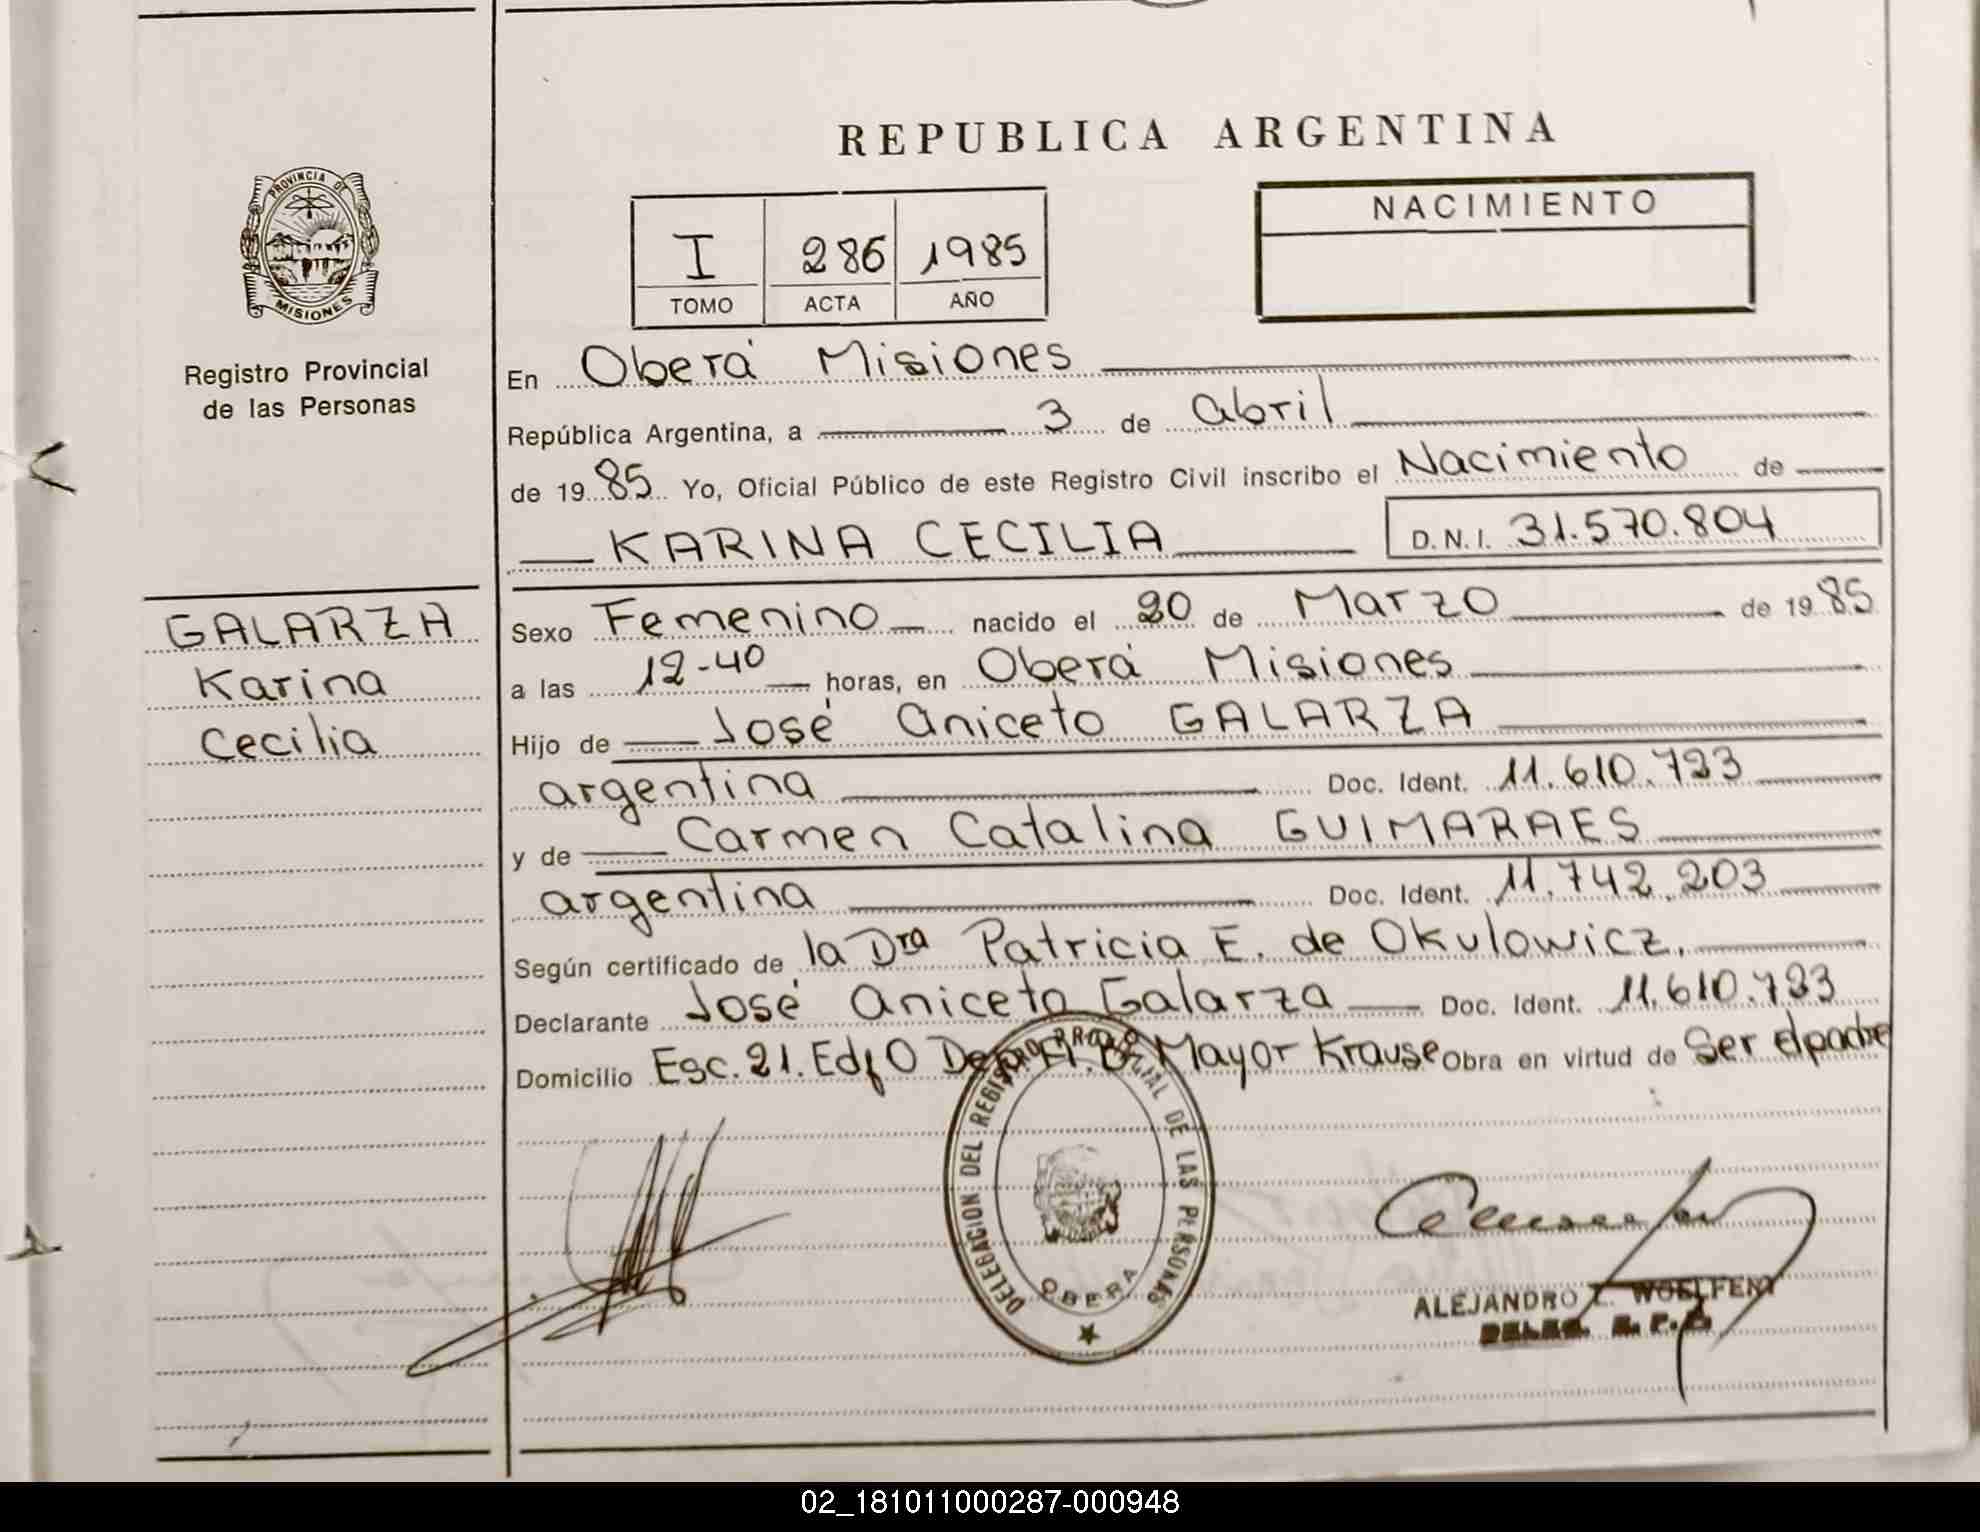 REPUBLICA ARGENTINA
PROVINCIA DE
MISIONES
Registro Provincial
de las Personas
I 286 1985
TOMO ACTA AÑO
NACIMIENTO
En Oberá Misiones
República Argentina, a 3 de abril
de 1985 Yo, Oficial Público de este Registro Civil inscribo el Nacimiento de
KARINA CECILIA D.N.I. 31.570.804
GALARZA
Karina
Cecilia
Sexo Femenino nacido el 20 de Marzo de 1985
a las 12-40 horas, en Oberá Misiones
Hijo de José aniceto GALARZA
argentina Doc. Ident. 11.610.723
y de Carmen Catalina GUIMARAES
argentina Doc. Ident. 11.742.203
Según certificado de la Dra Patricia E. de Okulowicz.
Declarante José aniceto Galarza Doc. Ident. 11.610.723
Domicilio Esc. 21. Edf O Mayor Krause Obra en virtud de Ser el padre
DELEGACION DEL REGISTRO PROVINCIAL DE LAS PERSONAS
OBERA
ALEJANDRO
02_181011000287-000948